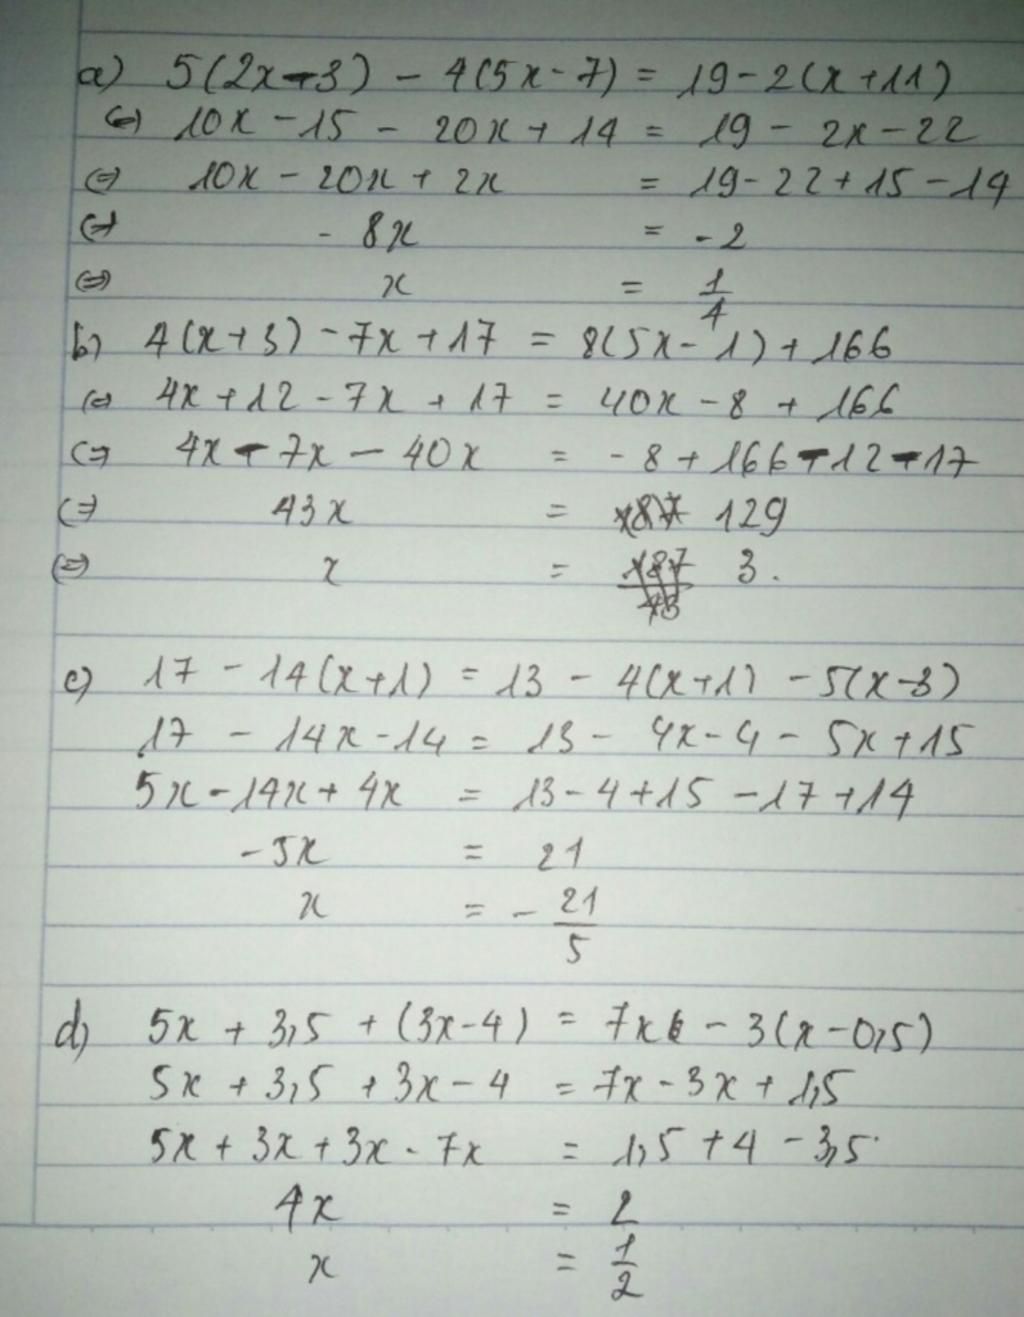 a) 5(2x-3) - 4(5x-7) = 19-2(x+11)
(=) 10x -15 - 20x + 14 = 19 - 2x - 22
(=) 10x - 20x + 2x = 19-22+15-14
(=) - 8x = -2
(=) x = 1/4
b) 4(x+3) - 7x + 17 = 8(5x-1) + 166
(=) 4x + 12 - 7x + 17 = 40x - 8 + 166
(=) 4x - 7x - 40x = -8 + 166 - 12 - 17
(=) 43x = 187 129
(=) x = 187/43 3.
c) 17 - 14(x+1) = 13 - 4(x+1) - 5(x-3)
17 - 14x - 14 = 13 - 4x - 4 - 5x + 15
5x - 14x + 4x = 13 - 4 + 15 - 17 + 14
-5x = 21
x = - 21/5
d) 5x + 3,5 + (3x-4) = 7x - 3(x-0,5)
5x + 3,5 + 3x - 4 = 7x - 3x + 1,5
5x + 3x + 3x - 7x = 1,5 + 4 - 3,5
4x = 2
x = 1/2